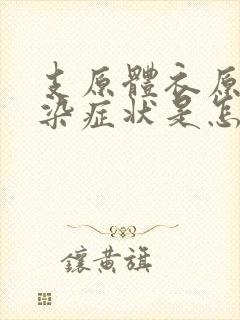 支原體衣原
染症狀是怎
鑲黃旗